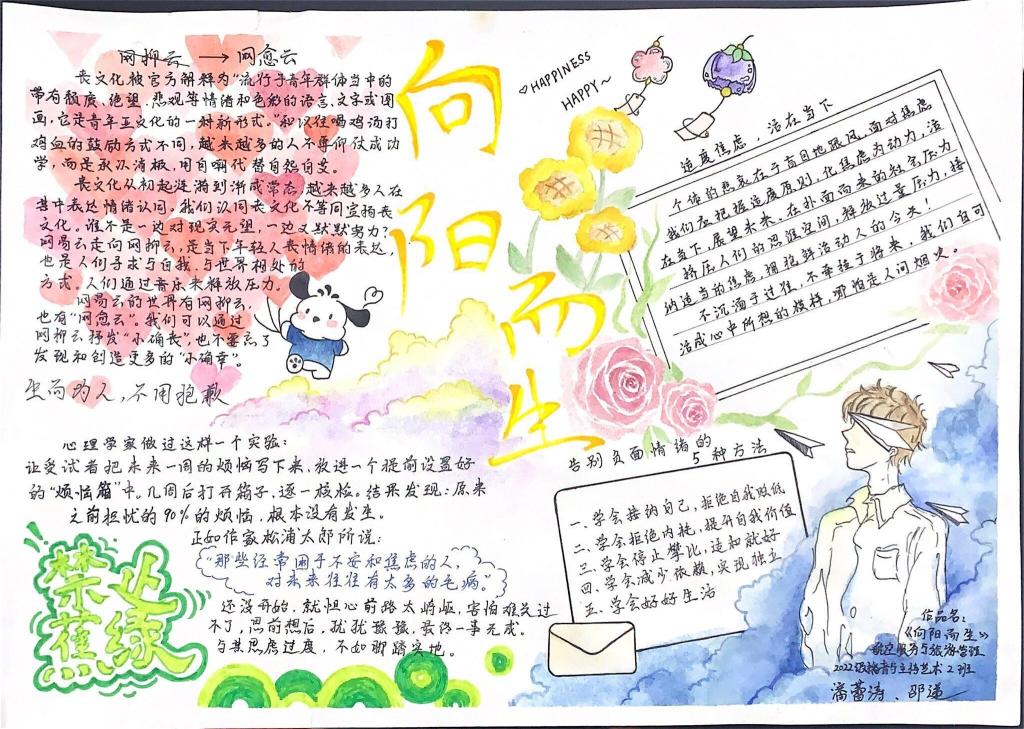 网抑云 → 网愈云
丧文化被官方解释为"流行于青年群体当中的
带有颓废、绝望、悲观等情绪和色彩的语言、文字或图
画,它是青年亚文化的一种新形式。"和以往喝鸡汤打
鸡血的鼓励方式不同,越来越多的人不尊仰仗成功
学,而是承认消极,用自嘲代替自怨自艾。
丧文化从初起涟漪到渐成常态,越来越多人在
其中表达情绪认同。我们认同丧文化不等同宣扬丧
文化。谁不是一边对现实无望,一边又默默努力?
网易云走向网抑云,是当下年轻人丧情绪的表达,
也是人们寻求与自我、与世界相处的
方式。人们通过音乐来释放压力。
网易云的世界有网抑云,
也有"网愈云"。我们可以通过
网抑云抒发"小确丧",也不要忘了
发现和创造更多的"小确幸"。
生而为人,不用抱歉
心理学家做过这样一个实验:
让受试者把未来一周的烦恼写下来,放进一个提前设置好
的"烦恼箱"中。几周后打开箱子,逐一核检。结果发现:原来
之前担忧的90%的烦恼,根本没有发生。
正如作家松浦太郎所说:
"那些经常困于不安和焦虑的人,
对未来往往有太多的毛病"
还没开始,就担心前路太崎岖,害怕难关过
不了,思前想后,犹犹豫豫,最终一事无成。
与其思虑过度,不如脚踏实地。
禁止
蕉绿
向阳而生
HAPPINESS
HAPPY~
适度焦虑,活在当下
个体的悲哀在于盲目地跟风,面对焦虑
我们应把握适度原则,化焦虑为动力,活
在当下,展望未来。在扑面而来的社会压力
挤压人们的思维空间,释放过量压力,接
纳适当的焦虑,拥抱鲜活动人的今天!
不沉湎于过往,不牵挂于将来,我们自可
活成心中所想的模样,哪怕是人间烟火。
告别负面情绪的
5种方法
一、学会接纳自己,拒绝自我贬低
二、学会拒绝内耗,提升自我价值
三、学会停止攀比,适和就好
四、学会减少依赖,实现独立
五、学会好好生活
作品名:
《向阳而生》
航空服务与旅游管理
2022级播音与主持艺术2班
潘蕾涛、邵递